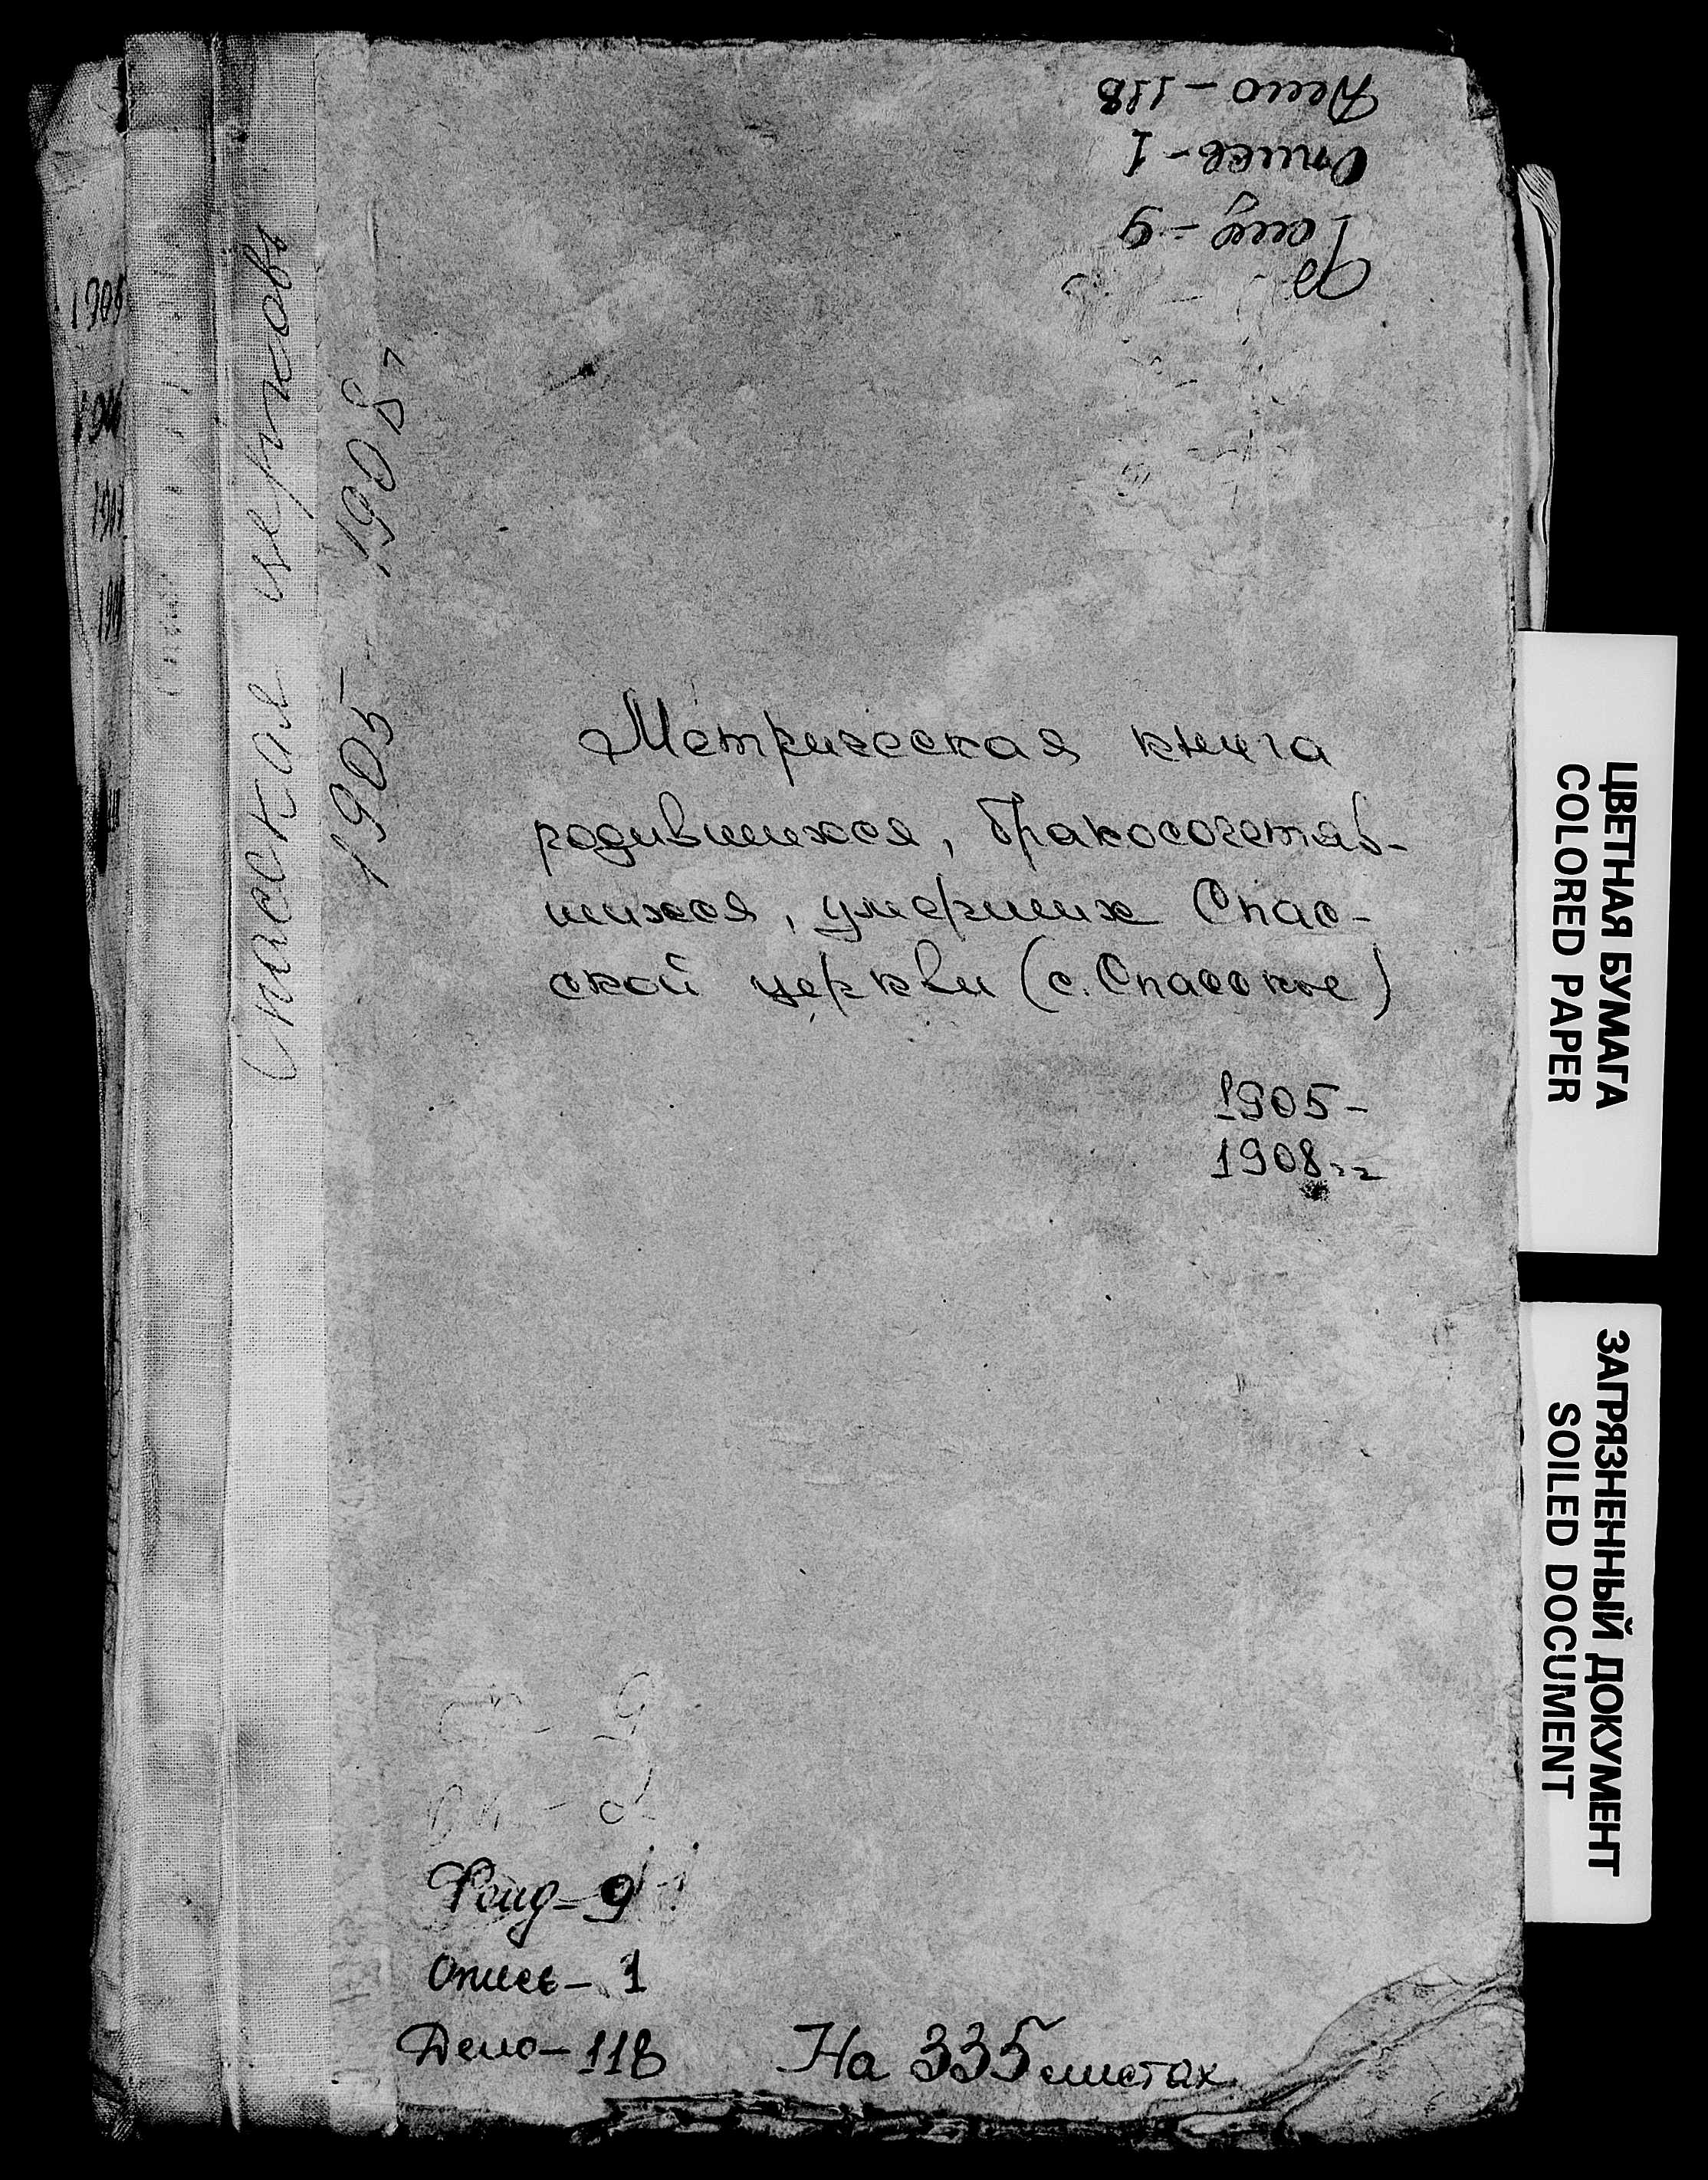 Дело - 118
Опись - 1
Фонд - 9
1905
1906
1907
1908
Спасская церковь
1905 - 1908 г
Метрическая книга
родившихся, бракосочетав-
шихся, умерших Спас-
ской церкви (с. Спасское)
1905 -
1908 гг
ЦВЕТНАЯ БУМАГА
COLORED PAPER
ЗАГРЯЗНЕННЫЙ ДОКУМЕНТ
SOILED DOCUMENT
Фонд - 9
Опись - 1
Дело - 118
На 335 листах